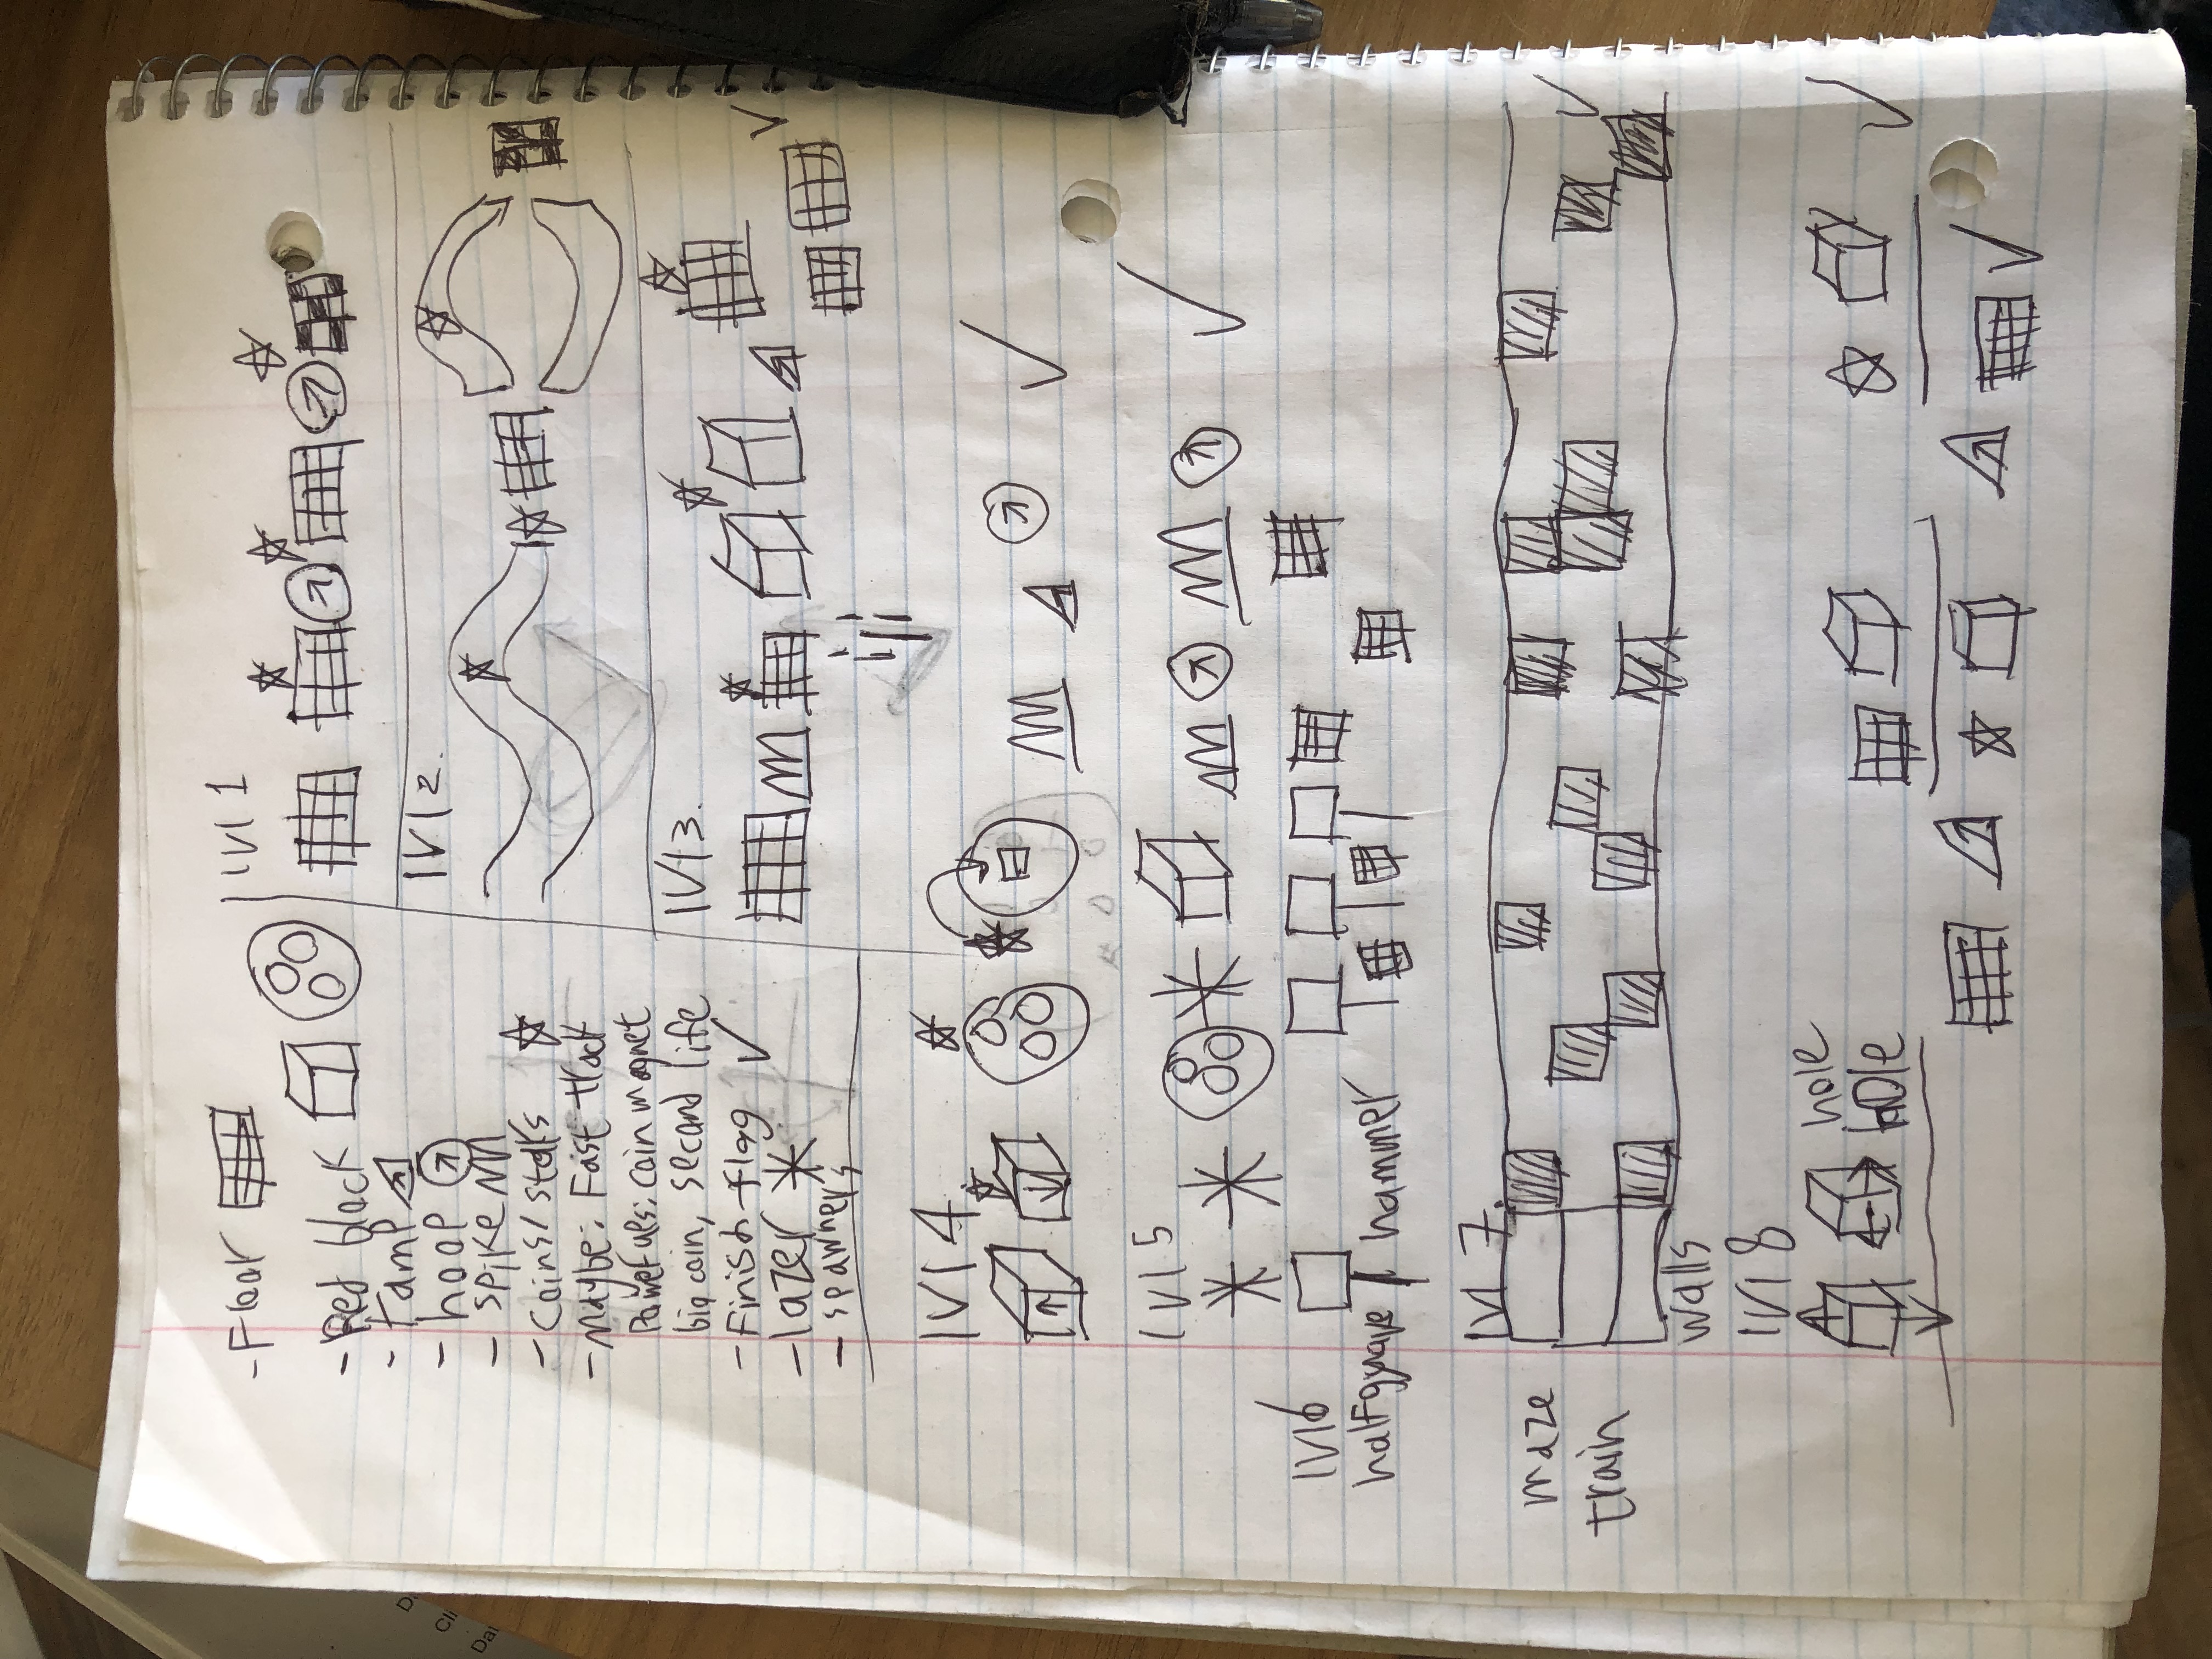 - Floor
- Red block
- ramp
- hoop
- spike
- Coins/stars
- Maybe: Fast track
Power ups: coin magnet
big coin, second life
- Finish flag
- lazer
- spawners
lvl 1
lvl 2.
lvl 3.
lvl 4
lvl 5
lvl 6
hammer
lvl 7.
maze
train
walls
lvl 8
hole
hole